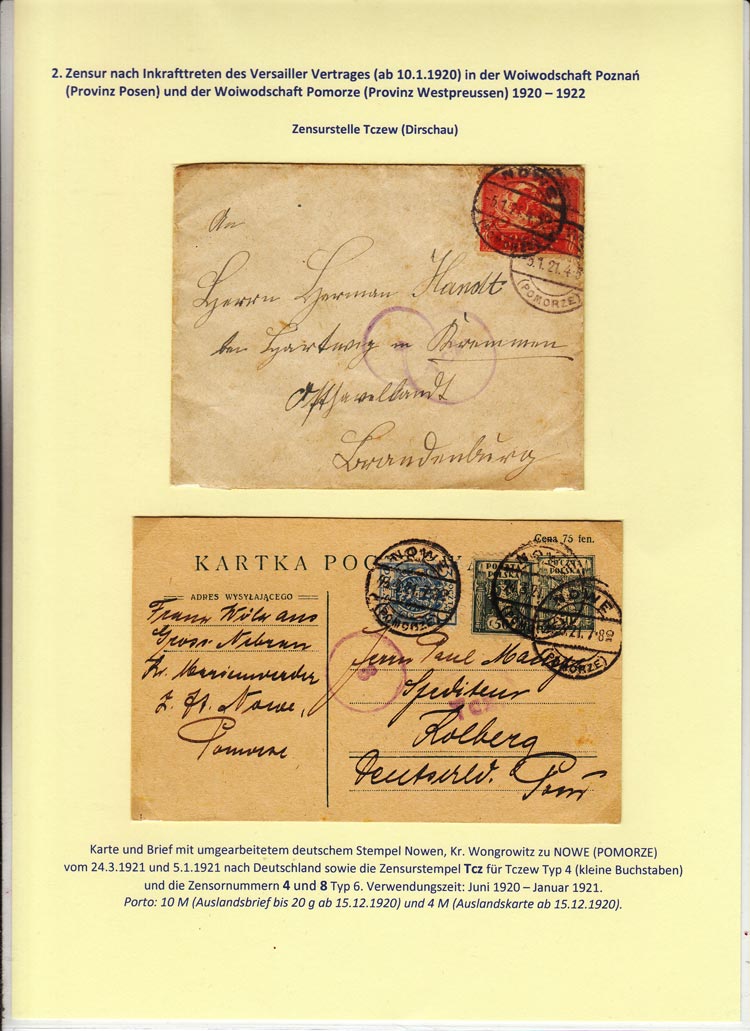 2. Zensur nach Inkrafttreten des Versailler Vertrages (ab 10.1.1920) in der Woiwodschaft Poznań
(Provinz Posen) und der Woiwodschaft Pomorze (Provinz Westpreussen) 1920 – 1922
Zensurstelle Tczew (Dirschau)
NOWE
5.1.21.4-5
(POMORZE)
An
Herrn Herman Handt
bei Hartwig in Kremmen
Osthavellandt
Brandenburg
Cena 75 fen.
KARTKA POC
NOWE
(POMORZE)
POCZTA
POLSKA
NOWE
21.7-8
(POMORZE)
ADRES WYSYŁAJĄCEGO
Franz
Gross Nebrau
Kr. Marienwerder
Z. Zt. Nowe,
Pomorze
8
Herrn Paul
Spediteur
Kolberg
Deutschld. Pom
Karte und Brief mit umgearbeitetem deutschem Stempel Nowen, Kr. Wongrowitz zu NOWE (POMORZE)
vom 24.3.1921 und 5.1.1921 nach Deutschland sowie die Zensurstempel Tcz für Tczew Typ 4 (kleine Buchstaben)
und die Zensornummern 4 und 8 Typ 6. Verwendungszeit: Juni 1920 – Januar 1921.
Porto: 10 M (Auslandsbrief bis 20 g ab 15.12.1920) und 4 M (Auslandskarte ab 15.12.1920).